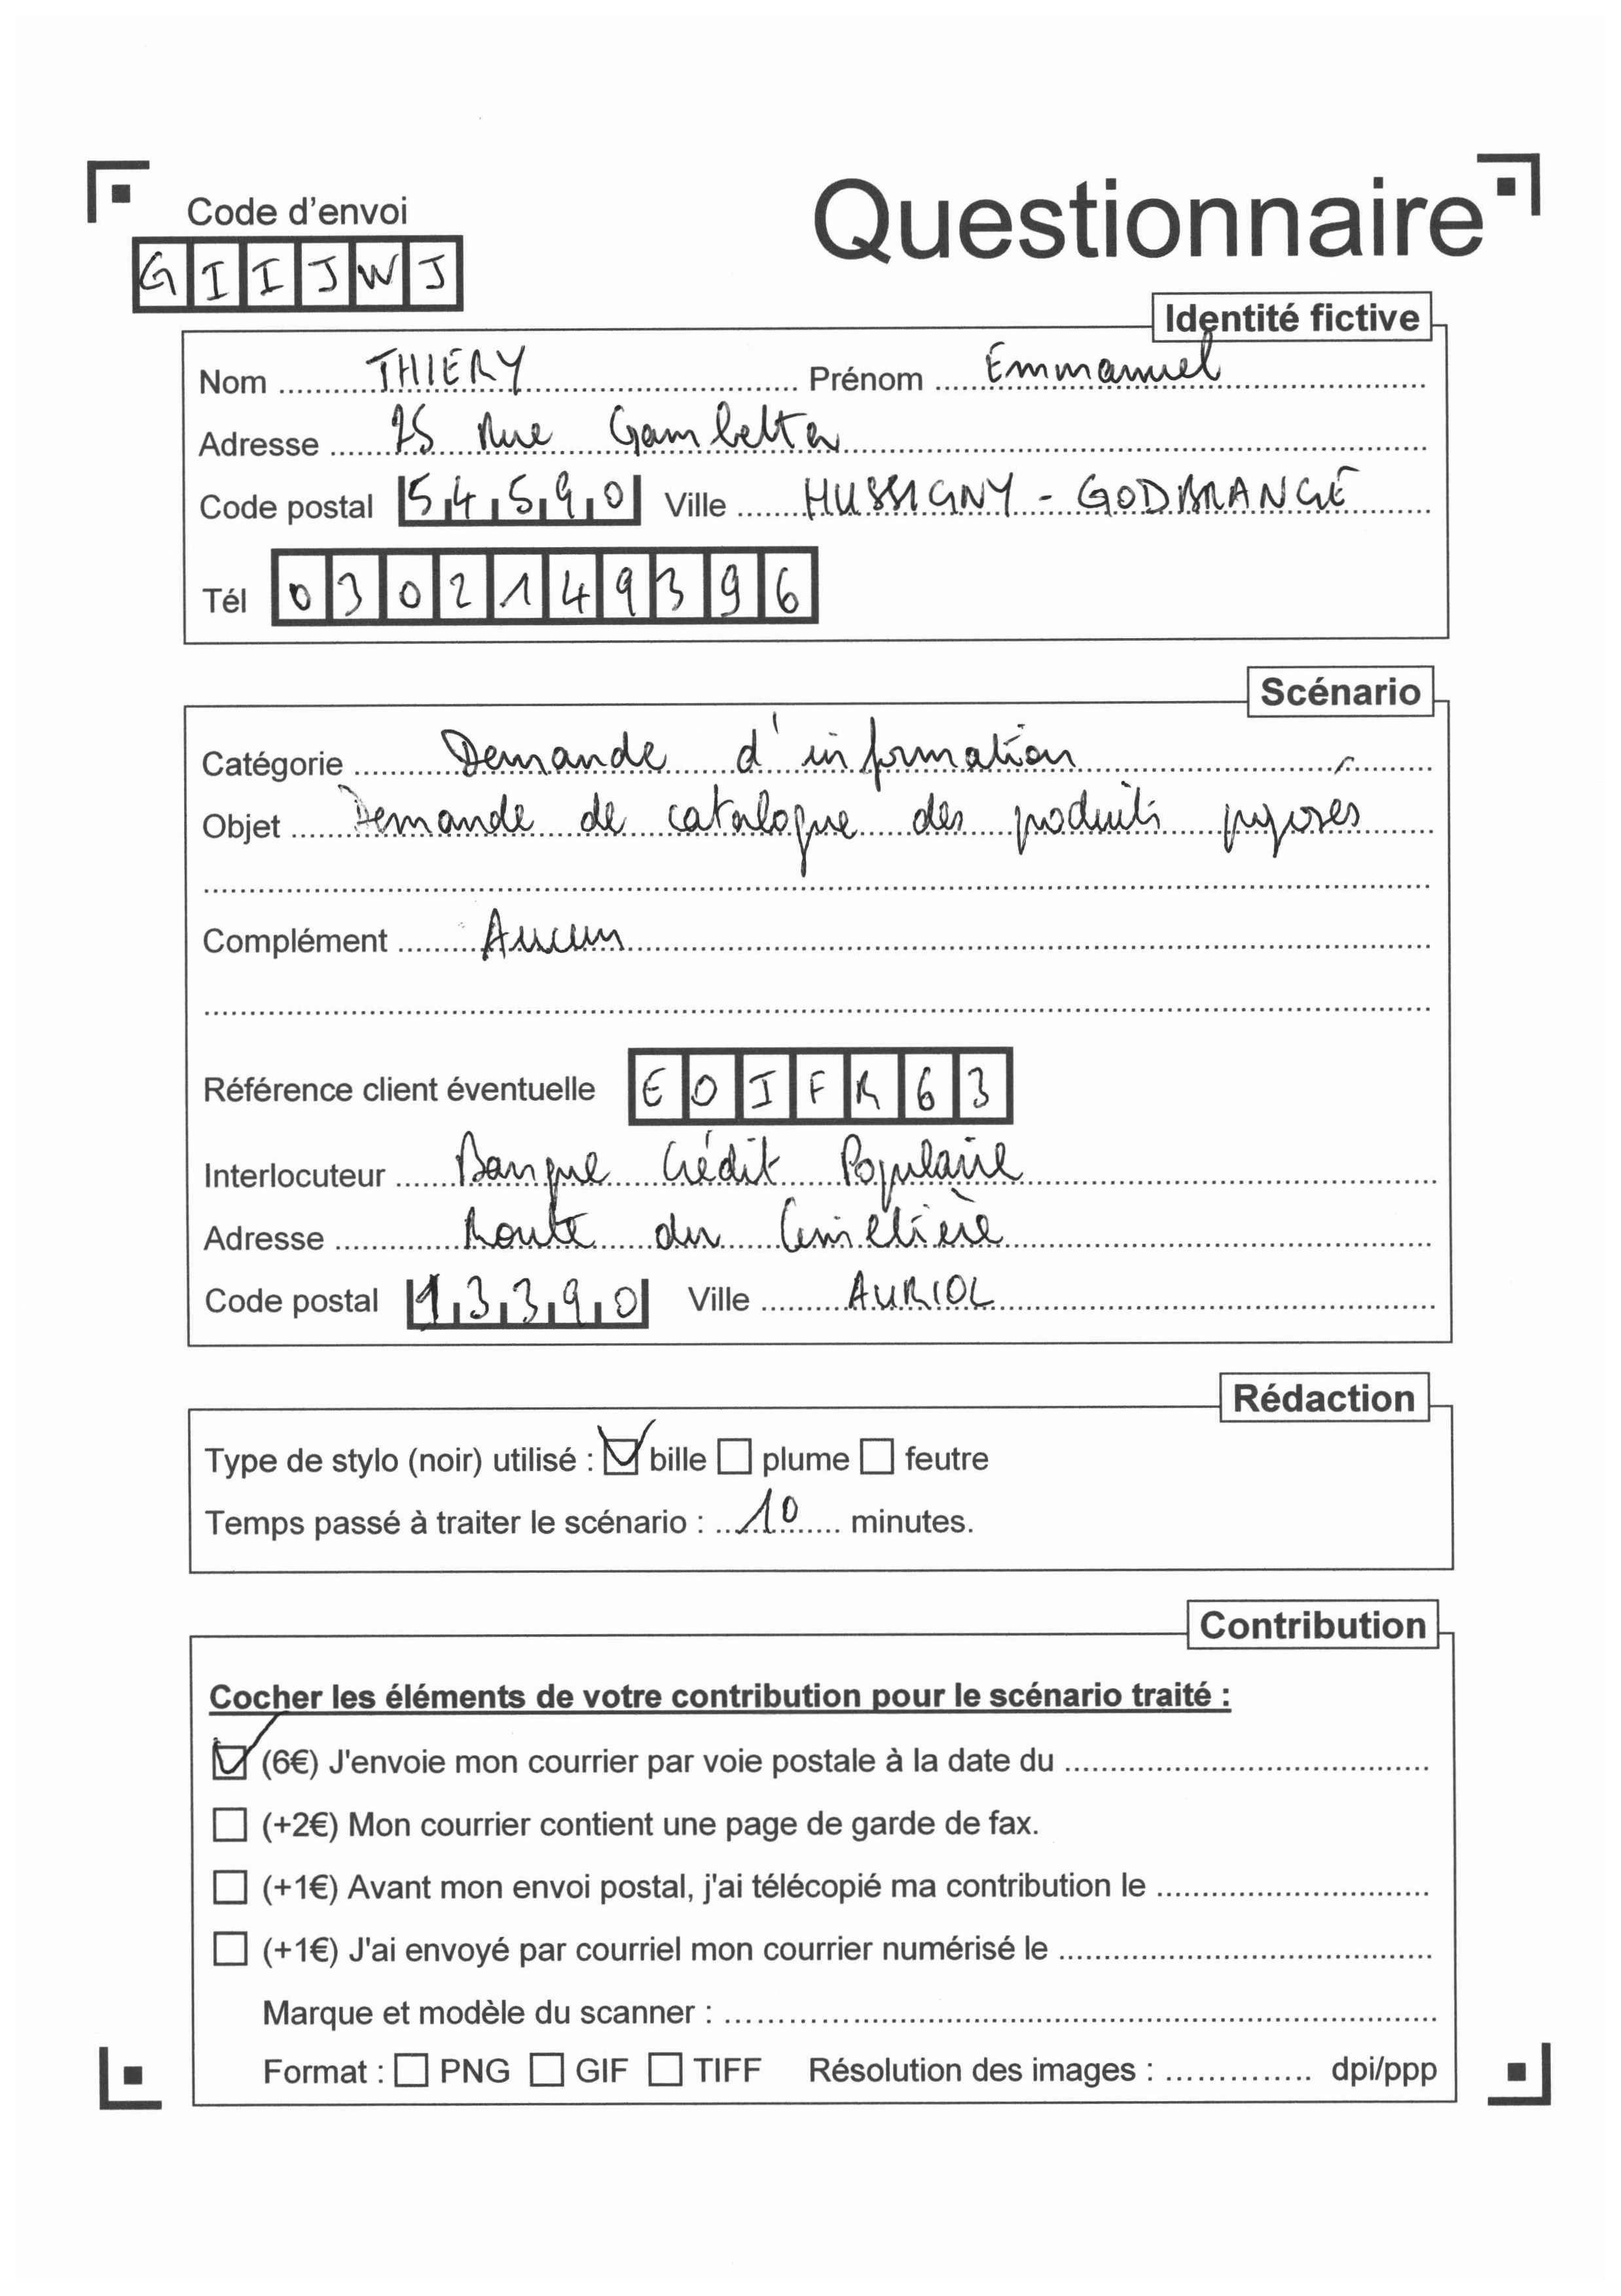 Questionnaire
Code d'envoi
GIIJWJ
Identité fictive
Nom THIERY Prénom Emmanuel
Adresse 25 Rue Gambetta
Code postal 54590 Ville HUSSIGNY - GODBRANGE
Tél 0302149396
Scénario
Catégorie Demande d'information
Objet Demande de catalogue des produits proposés
Complément Aucun
Référence client éventuelle EOIFR63
Interlocuteur Banque Crédit Populaire
Adresse Route du Cimetière
Code postal 13390 Ville AURIOL
Rédaction
Type de stylo (noir) utilisé : bille plume feutre
Temps passé à traiter le scénario : 10 minutes.
Contribution
Cocher les éléments de votre contribution pour le scénario traité :
(6€) J'envoie mon courrier par voie postale à la date du
(+2€) Mon courrier contient une page de garde de fax.
(+1€) Avant mon envoi postal, j'ai télécopié ma contribution le
(+1€) J'ai envoyé par courriel mon courrier numérisé le
Marque et modèle du scanner :
Format : PNG GIF TIFF Résolution des images : dpi/ppp